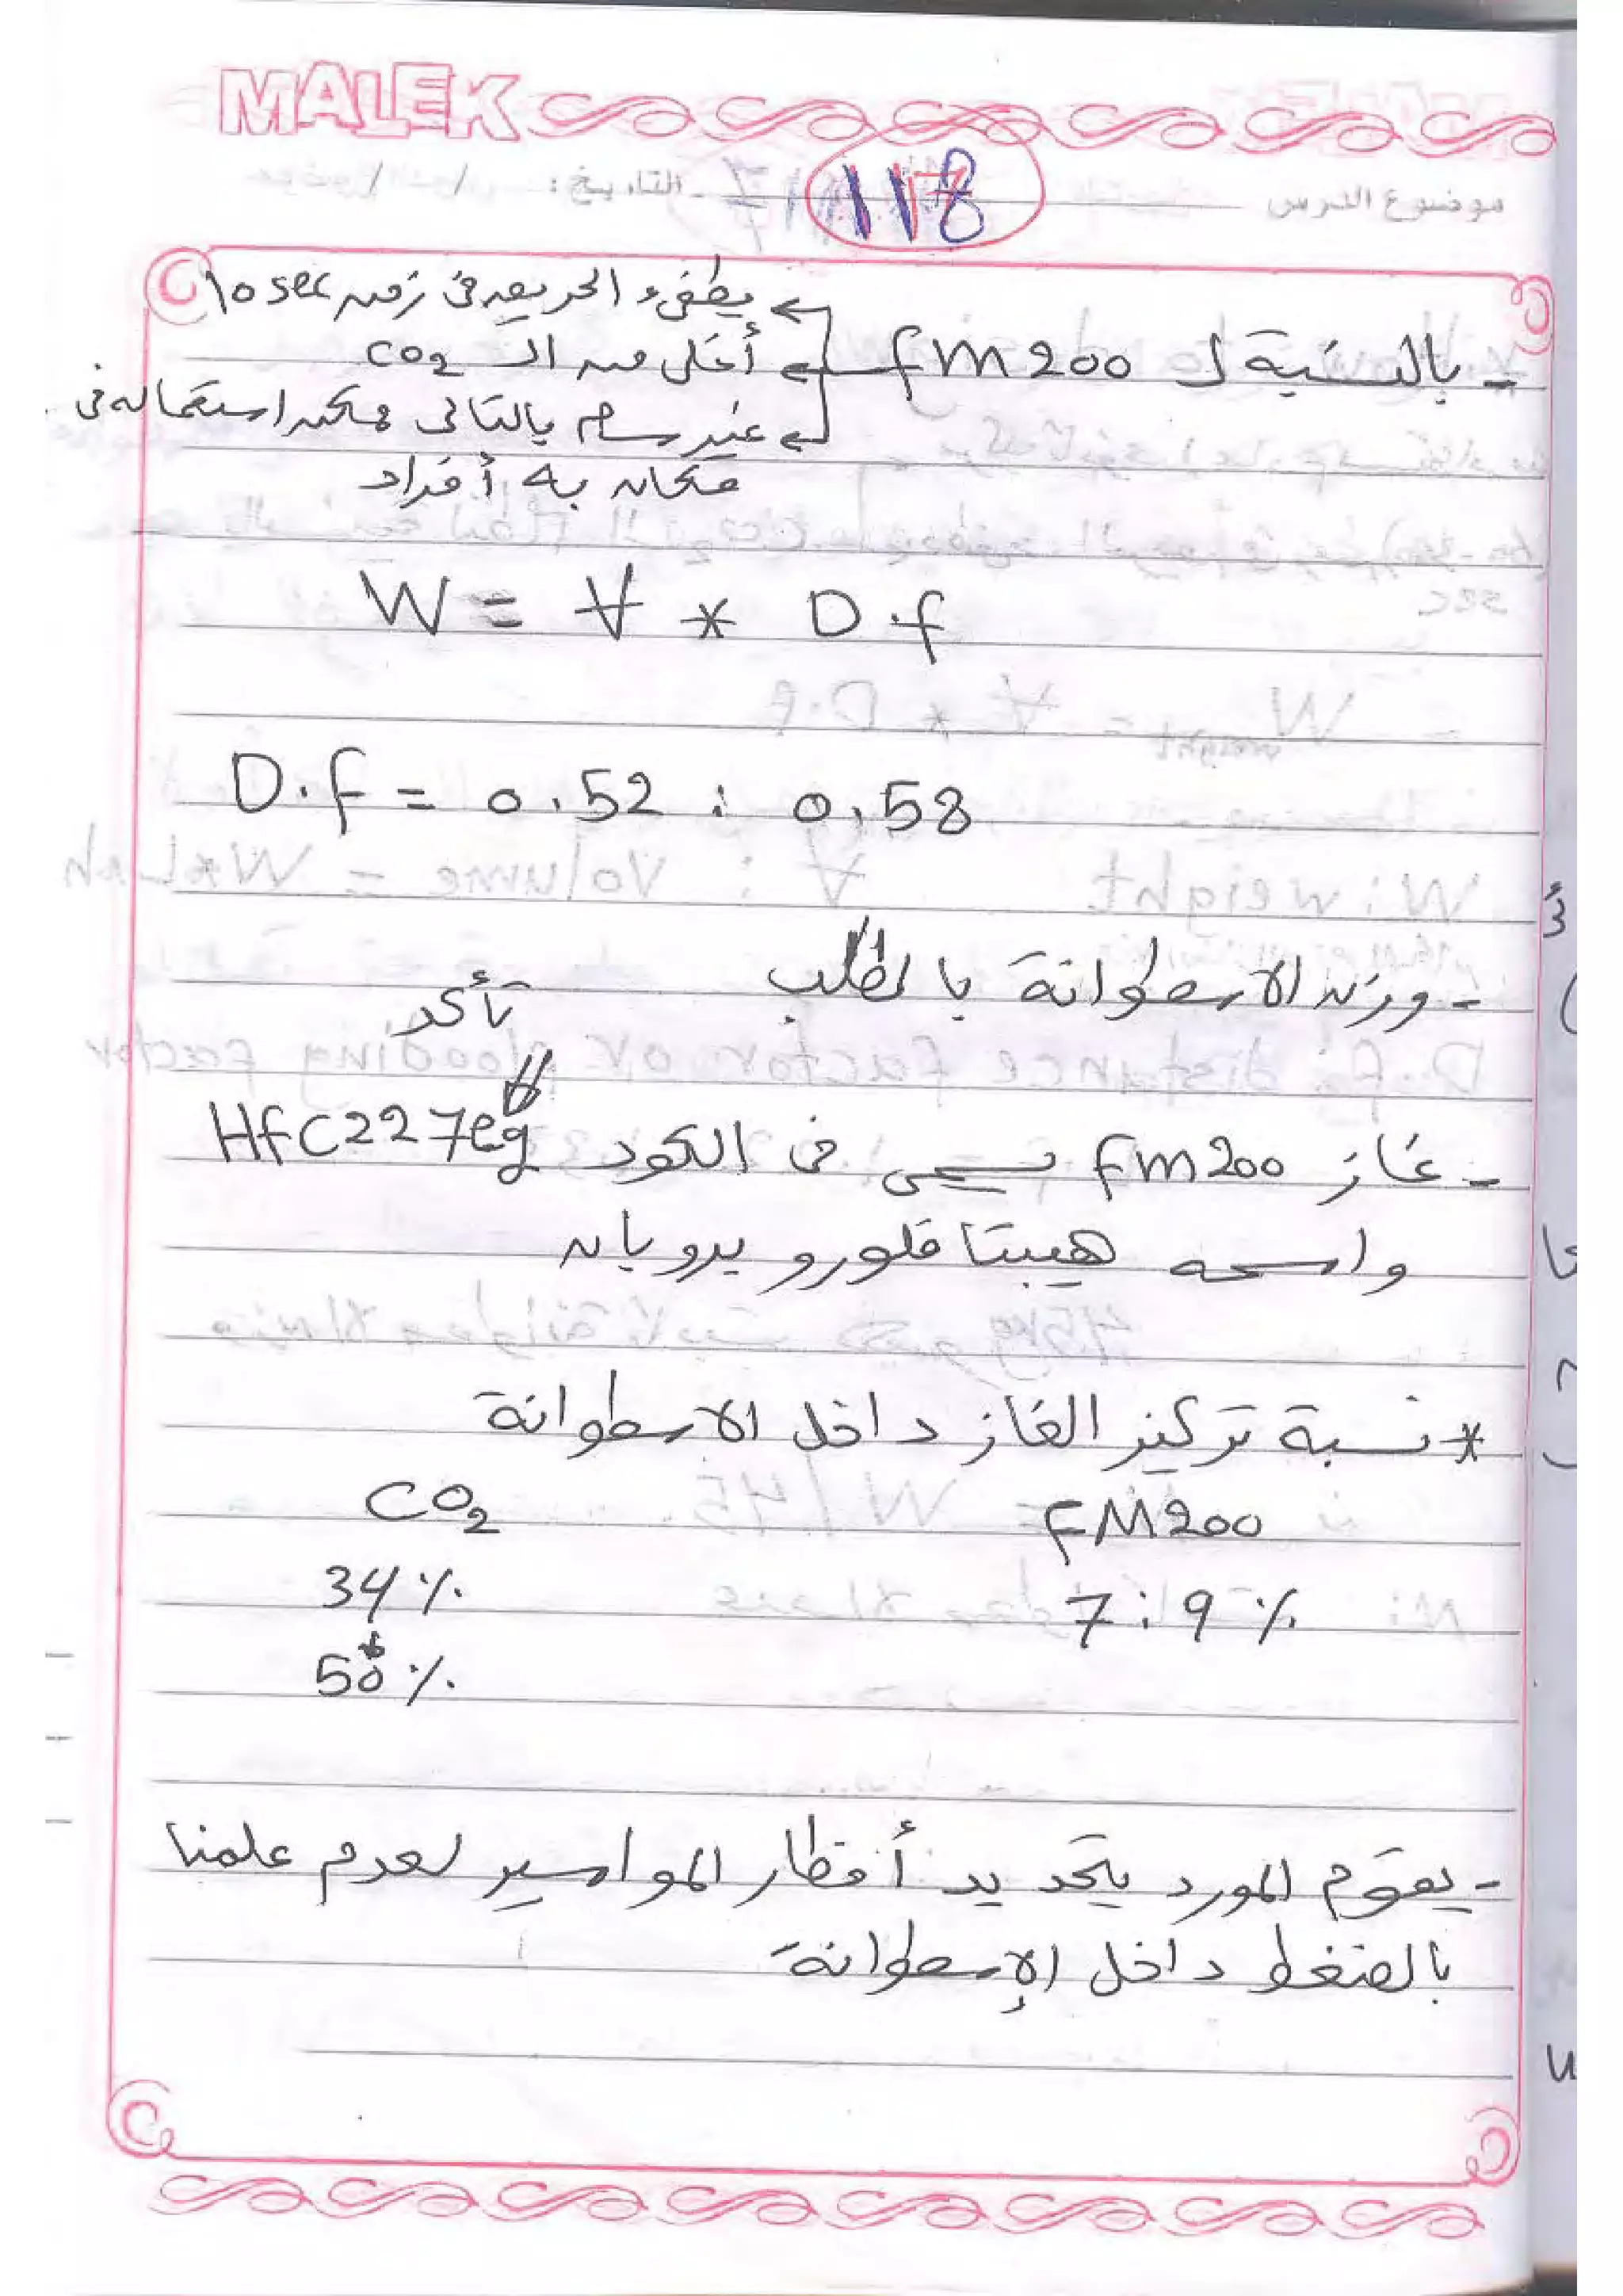 MALEK
موضوع الدرس
التاريخ : / /
118
- بالنسبة ل fm 200
يطفىء الحريق فى زمن 10 sec
أغلى من ال CO2
غير سام بالتالى ممكن استعماله فى
مكان به أفراد
W = V * D.f
D.f = 0.52 : 0.58
- وزن الاسطوانة بالطلب
تأكد
- غاز fm200 يسمى فى الكود HfC227eg
واسمه هيبتا فلورو بروبان
* نسبة تركيز الغاز داخل الاسطوانة
FM200 CO2
7 : 9 % 34 %
50 %
- يقوم المورد بتحديد أقطار المواسير لعدم علمنا
بالضغط داخل الإسطوانة